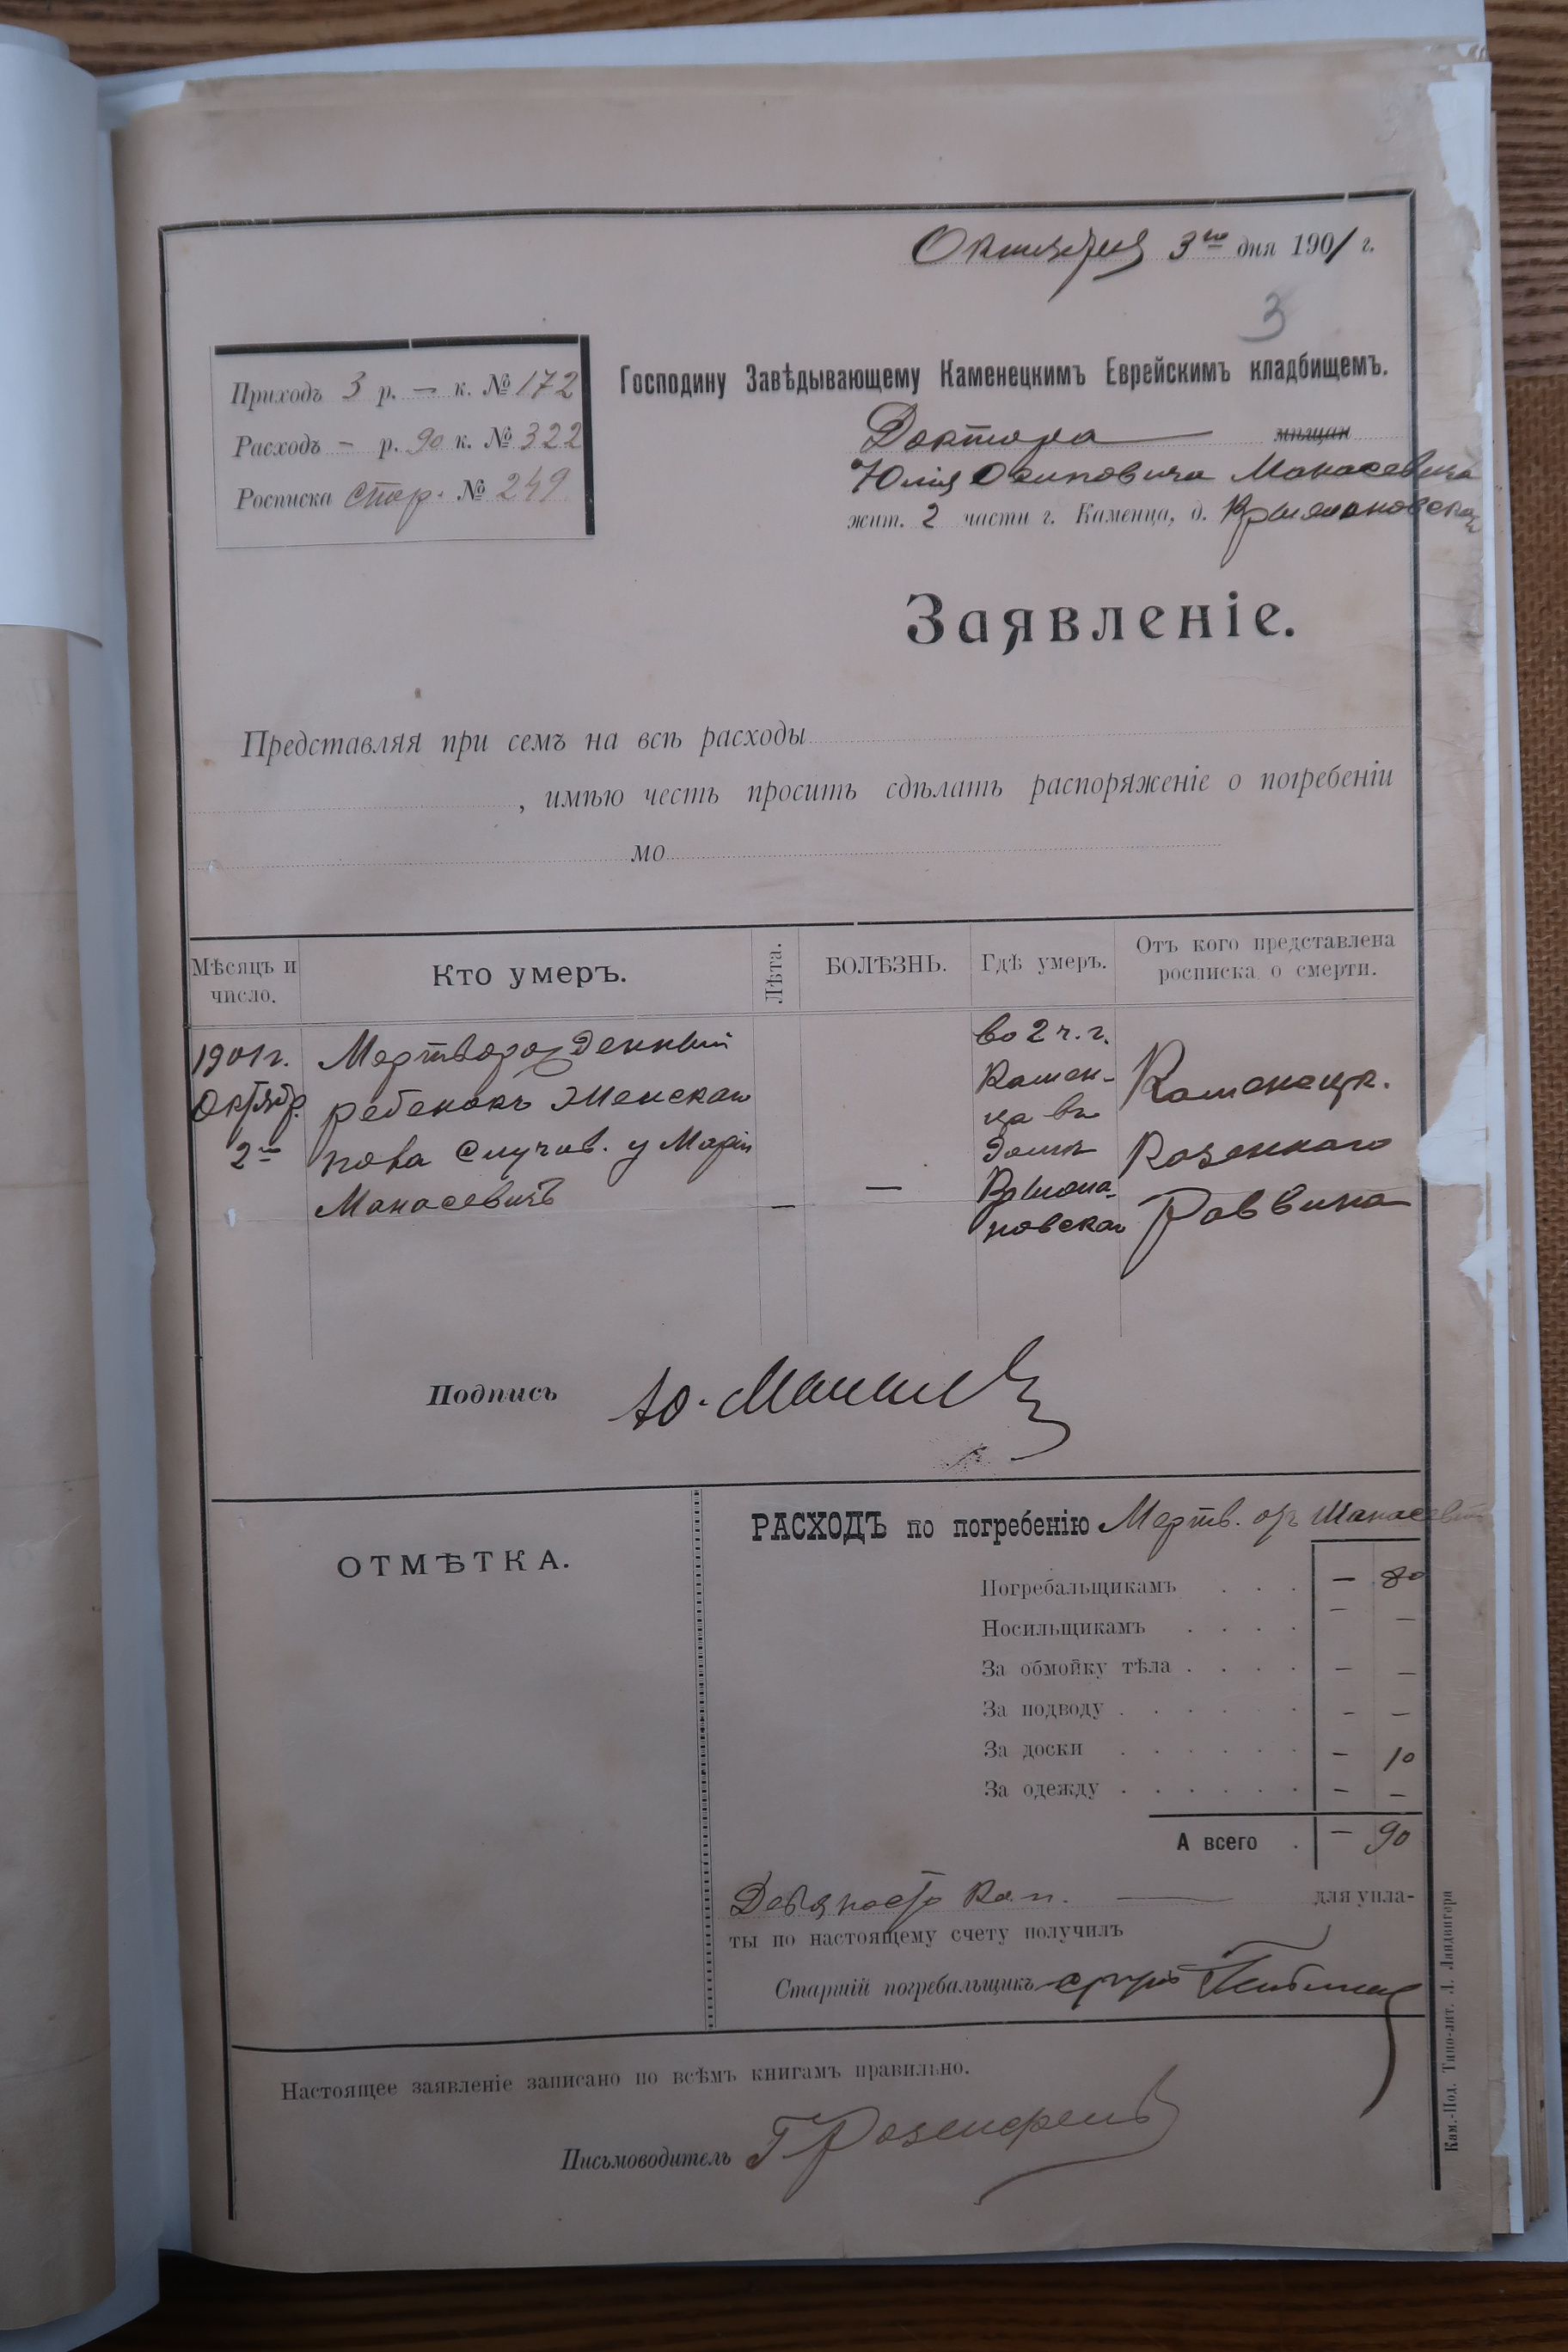 Октября 3го дня 1901 г.
3
Приходъ 3 р. — к. № 172
Расходъ — р. 90 к. № 322
Росписка стар. № 249
Господину Завѣдывающему Каменецкимъ Еврейскимъ кладбищемъ.
Доктора — мѣщан
Юлія Осиповича Манасевича
жит. 2 части г. Каменца, д.
Заявленіе.
Представляя при семъ на всѣ расходы
, имѣю честь просить сдѣлать распоряженіе о погребеніи
мо
Мѣсяцъ и число.
Кто умеръ.
Лѣта.
БОЛѢЗНЬ.
Гдѣ умеръ.
Отъ кого представлена росписка о смерти.
1901 г.
Октябр.
2го
Мертворожденный
ребенокъ женскаго
пола случив. у Маріи
Манасевичъ
—
—
во 2 ч. г.
Камен-
ца въ
домѣ
Каменецк.
Казеннаго
Раввина
Подпись Ю. Манасев
ОТМѢТКА.
РАСХОДЪ по погребенію Мертв. Манасевич
Погребальщикамъ . . . — 80
Носильщикамъ . . . . — —
За обмойку тѣла . . . . — —
За подводу . . . . . . — —
За доски . . . . . . — 10
За одежду . . . . . . — —
А всего . — 90
Девяносто коп. — для упла-
ты по настоящему счету получилъ
Старшій погребальщикъ
Настоящее заявленіе записано по всѣмъ книгамъ правильно.
Письмоводитель Г Розенфельд
Кам.-Под. Типо-лит. Л. Ландвигера